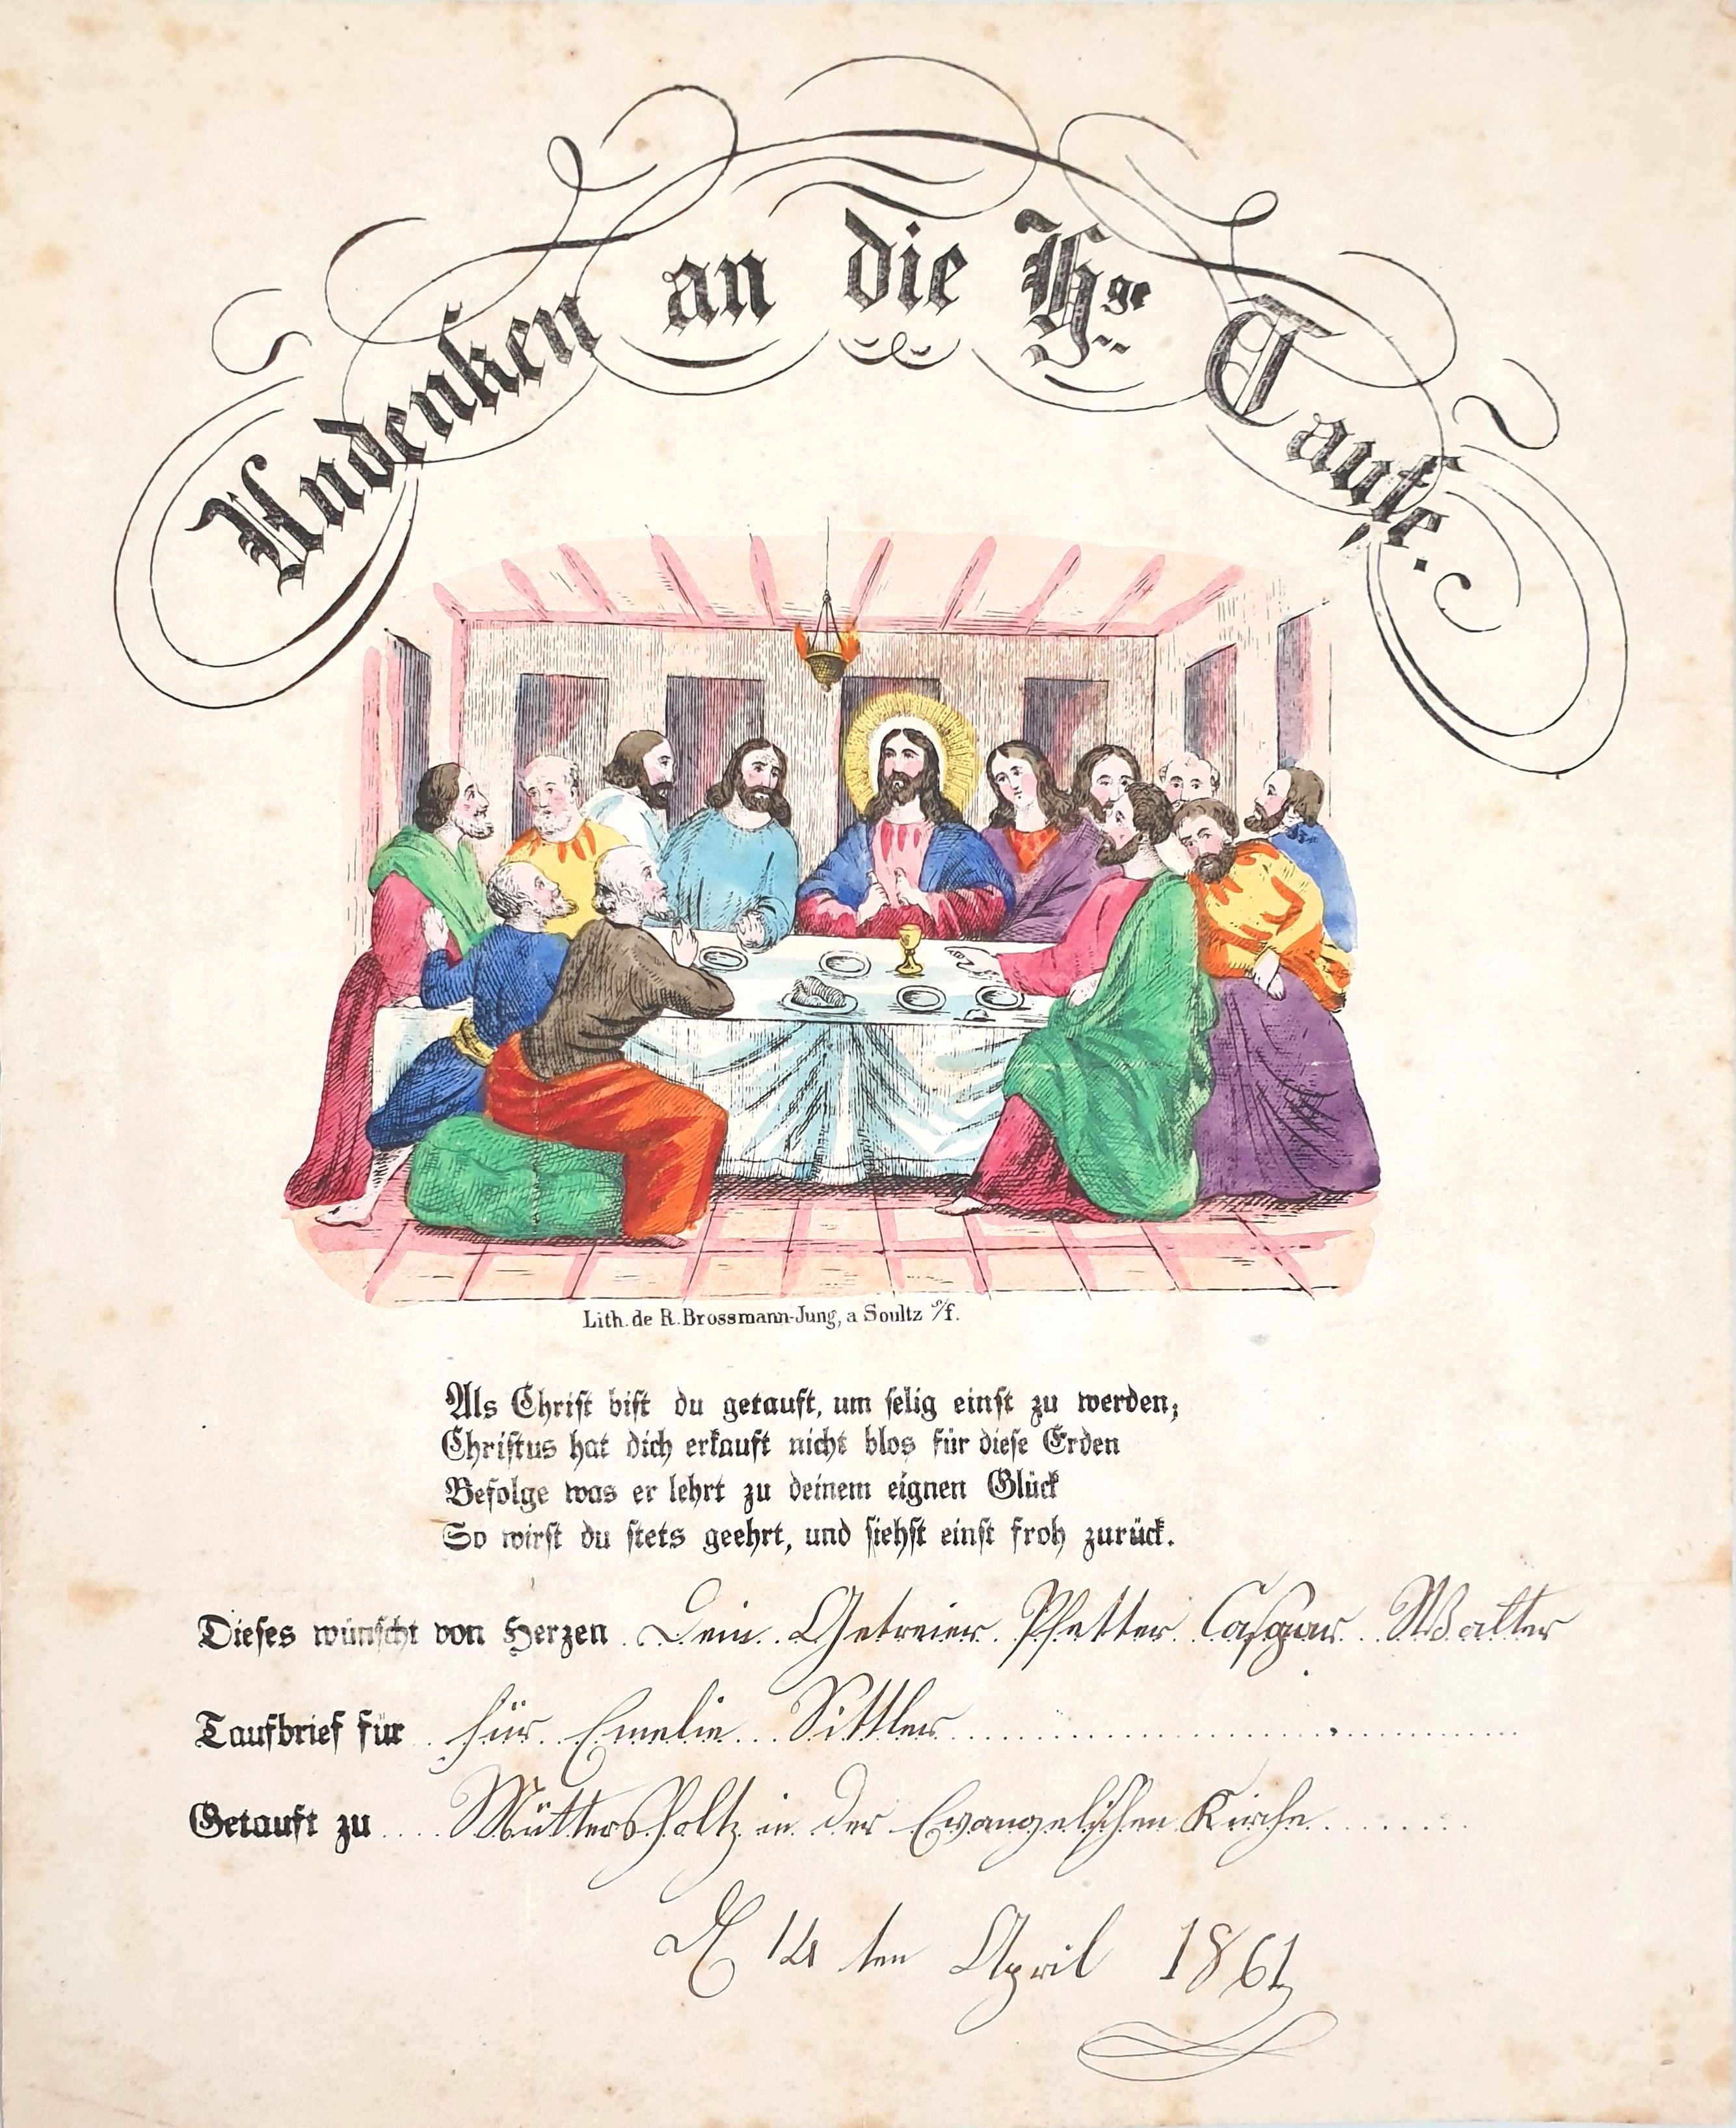 Andenken an die Hge Taufe.
Lith. de R. Brossmann-Jung, a Soultz s/f.
Als Christ bist du getauft, um selig einst zu werden;
Christus hat dich erkauft nicht blos für diese Erden
Befolge was er lehrt zu deinem eignen Glück
So wirst du stets geehrt, und siehst einst froh zurück.
Dieses wünscht von Herzen Dein Getreier Pfetter Caspar Walter
Taufbrief für für Emelie Sittler
Getauft zu Müttersholtz in der Evangelischen Kirche
14 ten April 1861